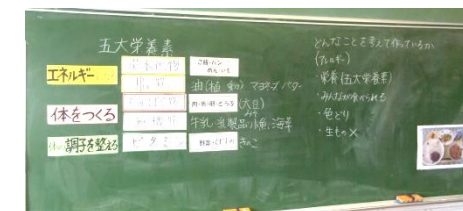 五大栄養素
エネルギー
炭水化物
ご飯・パン
めん・いも
脂質
油(植 動) マヨネーズ バター
体をつくる
肉・魚・卵・とうふ (大豆)
牛乳・乳製品 小魚 海草
調子を整える
ビタミン
野菜・くだもの きのこ
どんなことを考えて作っているか
(アレルギー)
・栄養(五大栄養素)
・みんなが食べられる
・色どり
・生もの×